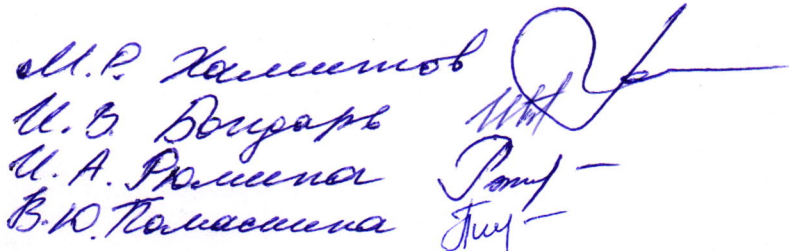 М.Р. Хамитов
И.В. Бондарь
И.А. Рюмина
В.Ю. Помаскина